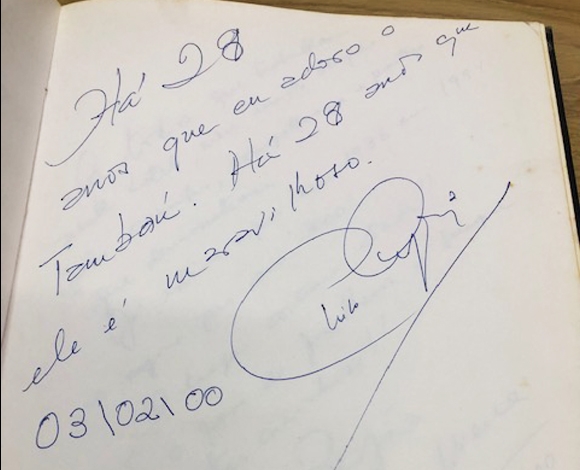 Há 28
anos que eu adoro o
Tambaú. Há 28 anos que
ele é maravilhoso.
03/02/00